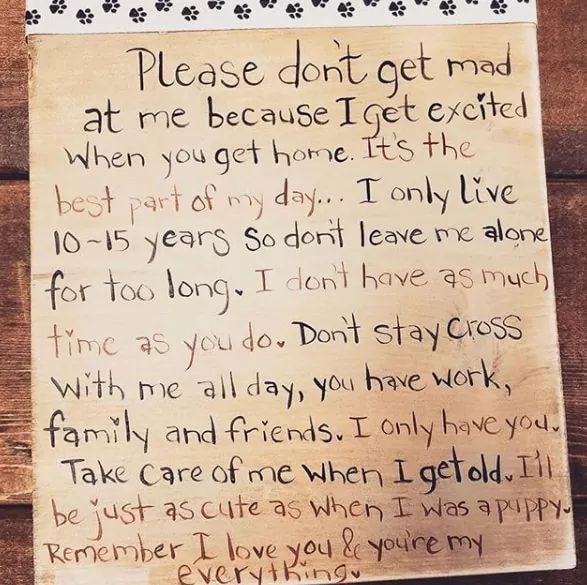 Please don't get mad
at me because I get excited
When you get home. It's the
best part of my day... I only live
10~15 years so don't leave me alone
for too long. I don't have as much
time as you do. Don't stay cross
With me all day, you have work,
family and friends. I only have you.
Take care of me when I get old. I'll
be just as cute as when I was a puppy.
Remember I love you & you're my
everything.